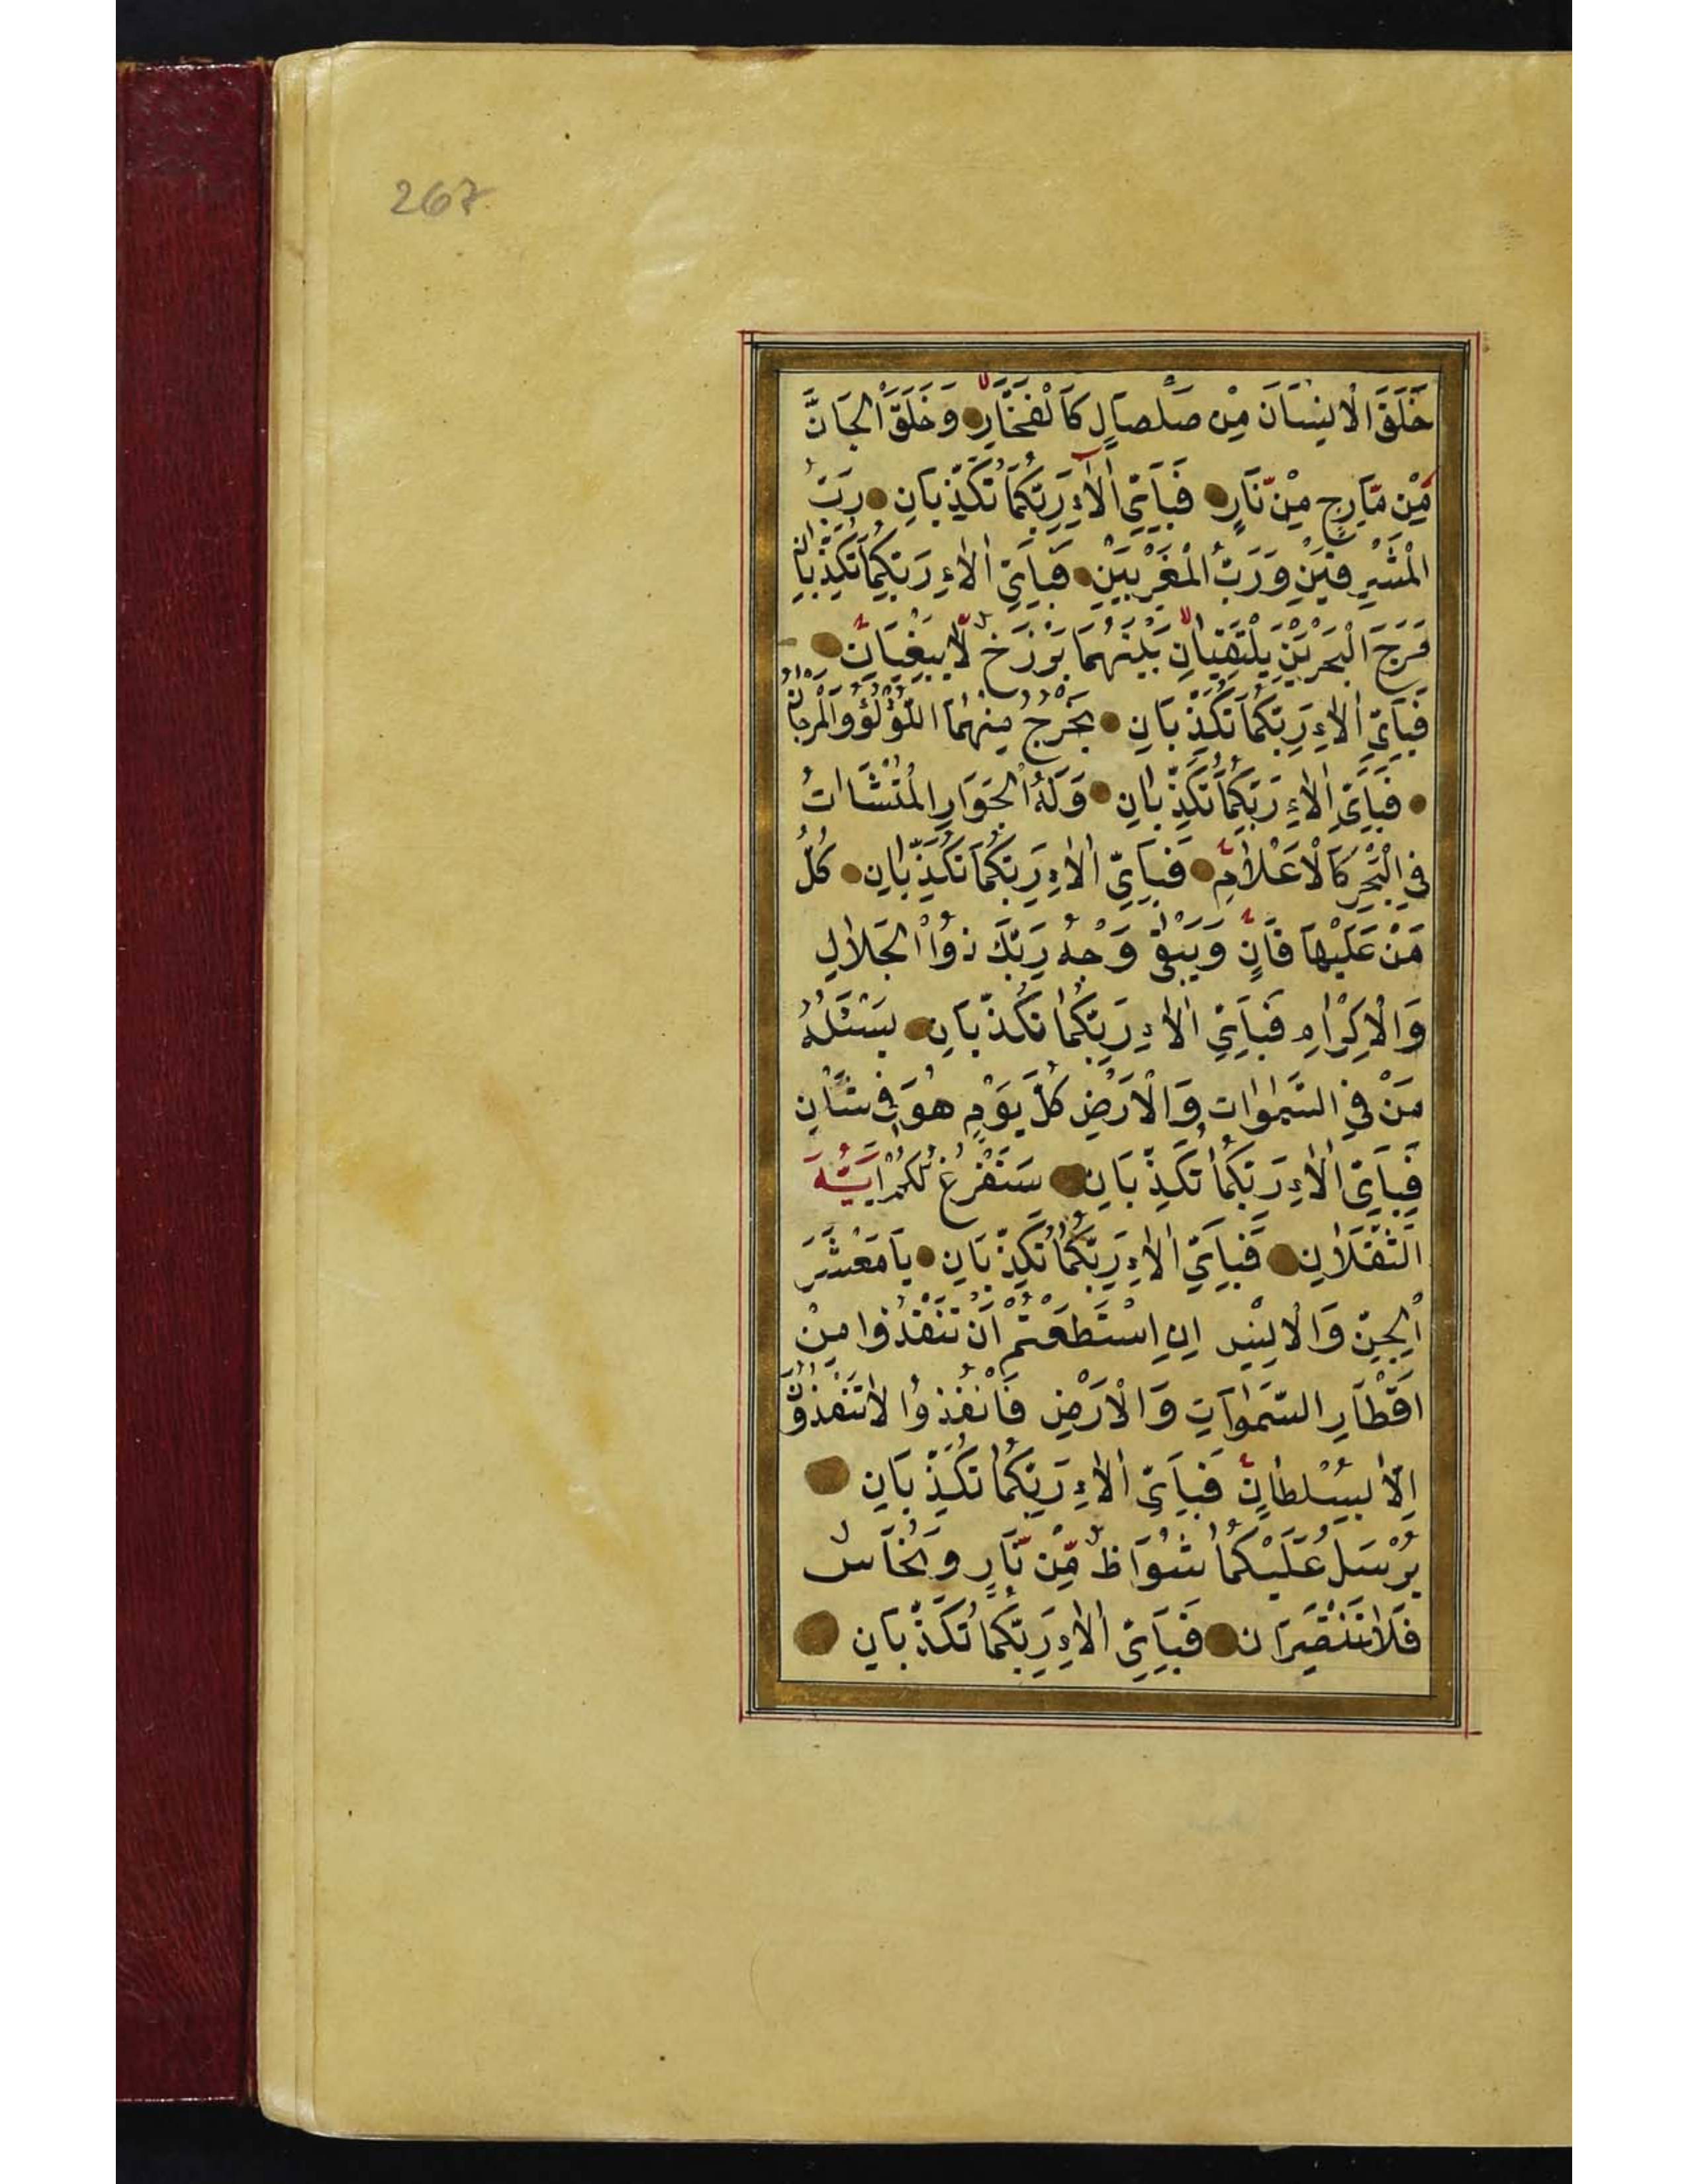 267
خَلَقَ الْاِنْسَانَ مِنْ صَلْصَالٍ كَالْفَخَّارِ وَخَلَقَ الْجَانَّ
مِنْ مَّارِجٍ مِنْ نَّارٍ فَبِاَيِّ اٰلَاءِ رَبِّكُمَا تُكَذِّبَانِ رَبُّ
الْمَشْرِقَيْنِ وَرَبُّ الْمَغْرِبَيْنِ فَبِاَيِّ اٰلَاءِ رَبِّكُمَا تُكَذِّبَانِ
مَرَجَ الْبَحْرَيْنِ يَلْتَقِيَانِ بَيْنَهُمَا بَرْزَخٌ لَّا يَبْغِيَانِ
فَبِاَيِّ اٰلَاءِ رَبِّكُمَا تُكَذِّبَانِ يَخْرُجُ مِنْهُمَا اللُّؤْلُؤُ وَالْمَرْجَانُ
فَبِاَيِّ اٰلَاءِ رَبِّكُمَا تُكَذِّبَانِ وَلَهُ الْجَوَارِ الْمُنْشَاٰتُ
فِي الْبَحْرِ كَالْاَعْلَامِ فَبِاَيِّ اٰلَاءِ رَبِّكُمَا تُكَذِّبَانِ كُلُّ
مَنْ عَلَيْهَا فَانٍ وَيَبْقٰى وَجْهُ رَبِّكَ ذُوا الْجَلَالِ
وَالْاِكْرَامِ فَبِاَيِّ اٰلَاءِ رَبِّكُمَا تُكَذِّبَانِ يَسْئَلُهُ
مَنْ فِي السَّمٰوَاتِ وَالْاَرْضِ كُلَّ يَوْمٍ هُوَ فِي شَاْنٍ
فَبِاَيِّ اٰلَاءِ رَبِّكُمَا تُكَذِّبَانِ سَنَفْرُغُ لَكُمْ اَيُّهَ
الثَّقَلَانِ فَبِاَيِّ اٰلَاءِ رَبِّكُمَا تُكَذِّبَانِ يَا مَعْشَرَ
الْجِنِّ وَالْاِنْسِ اِنِ اسْتَطَعْتُمْ اَنْ تَنْفُذُوا مِنْ
اَقْطَارِ السَّمٰوَاتِ وَالْاَرْضِ فَانْفُذُوا لَا تَنْفُذُونَ
اِلَّا بِسُلْطَانٍ فَبِاَيِّ اٰلَاءِ رَبِّكُمَا تُكَذِّبَانِ
يُرْسَلُ عَلَيْكُمَا شُوَاظٌ مِّنْ نَّارٍ وَنُحَاسٌ
فَلَا تَنْتَصِرَانِ فَبِاَيِّ اٰلَاءِ رَبِّكُمَا تُكَذِّبَانِ